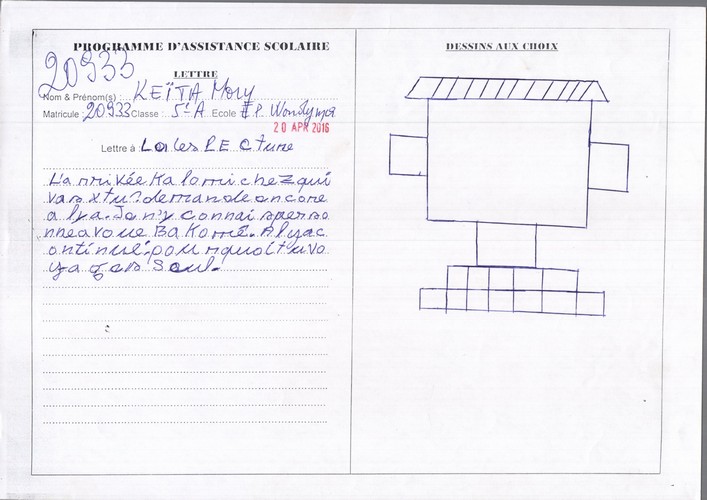 PROGRAMME D'ASSISTANCE SCOLAIRE
20933
LETTRE
Nom & Prénom(s) : KEÏTA Mory
Matricule : 20933 Classe : 5e A Ecole E P
20 APR 2016
Lettre à : LECture
L'arrivée
va s x tu? demande encore
a lya. Je n'y connai s perso
nne a voue Ba Komé. Alya c
ontinue: pourquoi tu vo
ya ges seul.
DESSINS AUX CHOIX